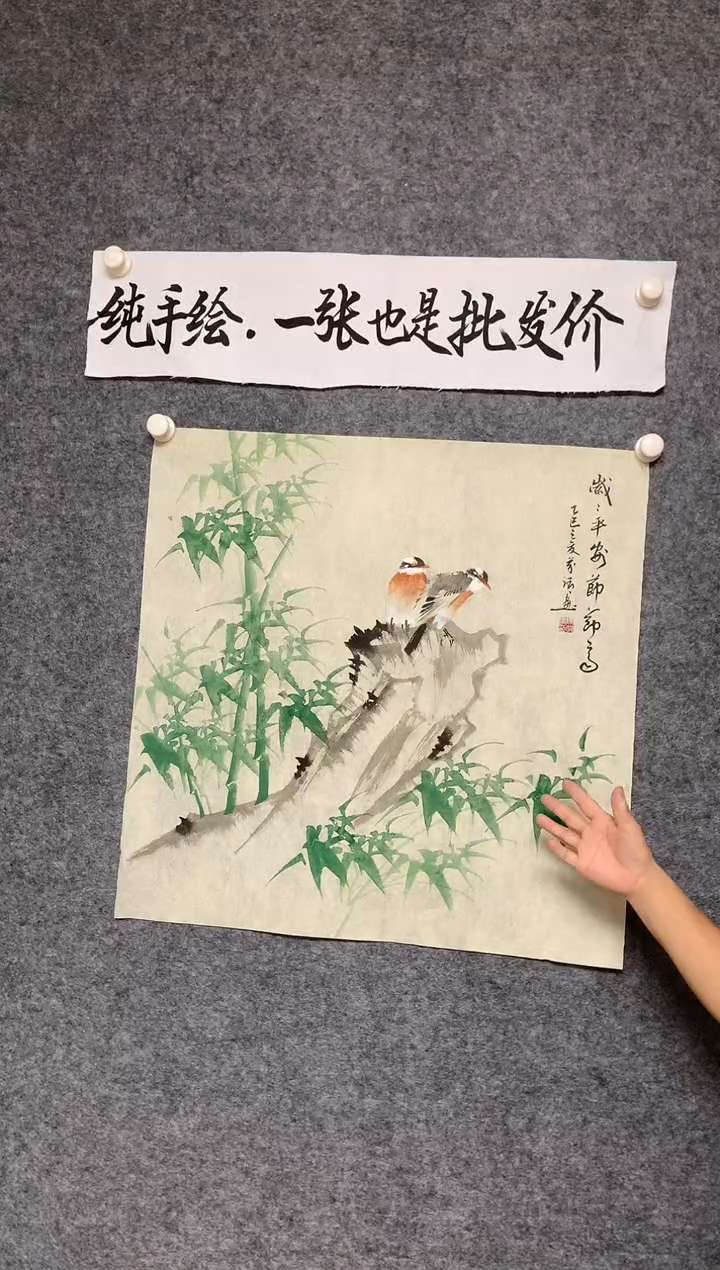 纯手绘.一张也是批发价
歲:平安節節高
乙巳之夏